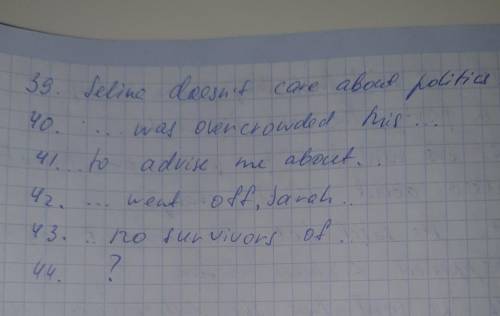 39. Selina doesn't care about politics
40. ... was overcrowded this ...
41. ... to advise me about ...
42. ... went off, Sarah ..
43. .. no survivors of ..
44. ?